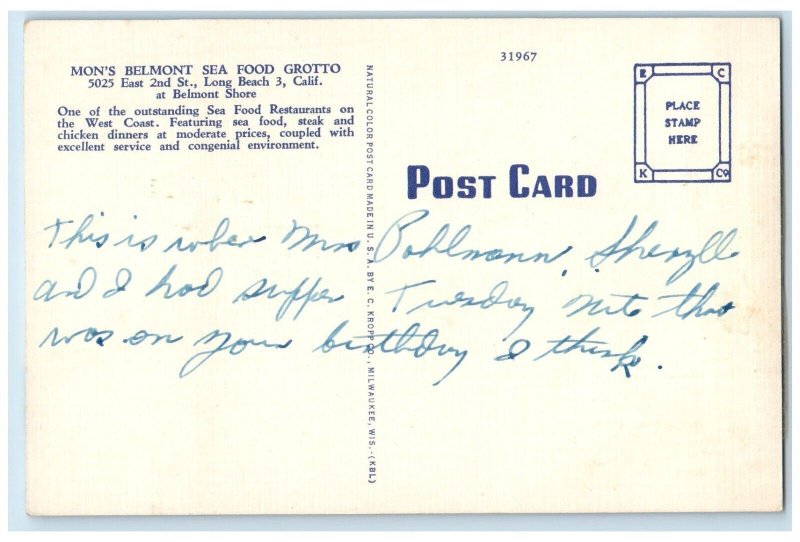 31967
MON'S BELMONT SEA FOOD GROTTO
5025 East 2nd St., Long Beach 3, Calif.
at Belmont Shore
One of the outstanding Sea Food Restaurants on
the West Coast. Featuring sea food, steak and
chicken dinners at moderate prices, coupled with
excellent service and congenial environment.
E C
PLACE
STAMP
HERE
K Co
POST CARD
NATURAL COLOR POST CARD MADE IN U. S. A. BY E. C. KROPP CO., MILWAUKEE, WIS.-(KBL)
This is where Mrs Pohlmann, Sheryll
and I had supper Tuesday nite tho
was on your birthday I think.